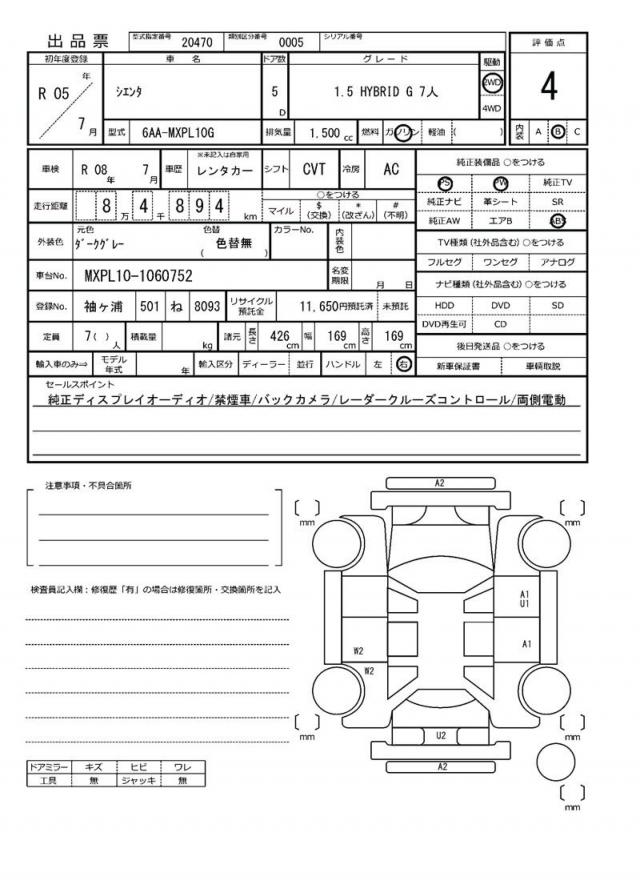 出品票 型式指定番号 20470 類別区分番号 0005 シリアル番号
初年度登録 車名 ドア数 グレード 駆動 評価点
R 05 年 7 月 シエンタ 5 D 1.5 HYBRID G 7人 2WD 4WD 4
型式 6AA-MXPL10G 排気量 1,500 cc 燃料 ガソリン 軽油 ( ) 内装 A B C
車検 R 08 年 7 月 車歴 ※未記入は自家用 レンタカー シフト CVT 冷房 AC 純正装備品 ○をつける
PS PW 純正TV
走行距離 8 万 4 千 8 9 4 km ○をつける マイル $ (交換) * (改ざん) # (不明) 純正ナビ 革シート SR
純正AW エアB ABS
外装色 元色 ダークグレー 色替 ( 色替無 ) カラーNo. 内装色 TV種類 (社外品含む) ○をつける
フルセグ ワンセグ アナログ
車台No. MXPL10-1060752 名変期限 月 日 ナビ種類 (社外品含む) ○をつける
登録No. 袖ヶ浦 501 ね 8093 リサイクル預託金 11,650円預託済 未預託 HDD DVD SD
DVD再生可 CD
定員 7( ) 人 積載量 kg 諸元 長さ 426 cm 幅 169 cm 高さ 169 cm 後日発送品 ○をつける
輸入車のみ⇒ モデル年式 年 輸入区分 ディーラー 並行 ハンドル 左 右 新車保証書 車輌取説
セールスポイント
純正ディスプレイオーディオ/禁煙車/バックカメラ/レーダークルーズコントロール/両側電動
注意事項・不具合箇所
検査員記入欄：修復歴「有」の場合は修復箇所・交換箇所を記入
ドアミラー キズ ヒビ ワレ
工具 無 ジャッキ 無
A2
mm mm
A1
U1
W2 A1
W2
mm mm
U2
A2
mm